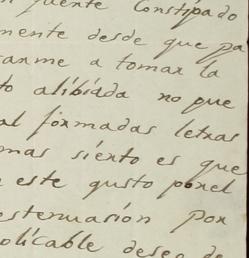 fuente Constipado
mente desde que pa
sanme a tomar la
to alibiada no pue
al formadas letras
mas siento es que
este gusto ponel
estenuasión por
plicable deseo de